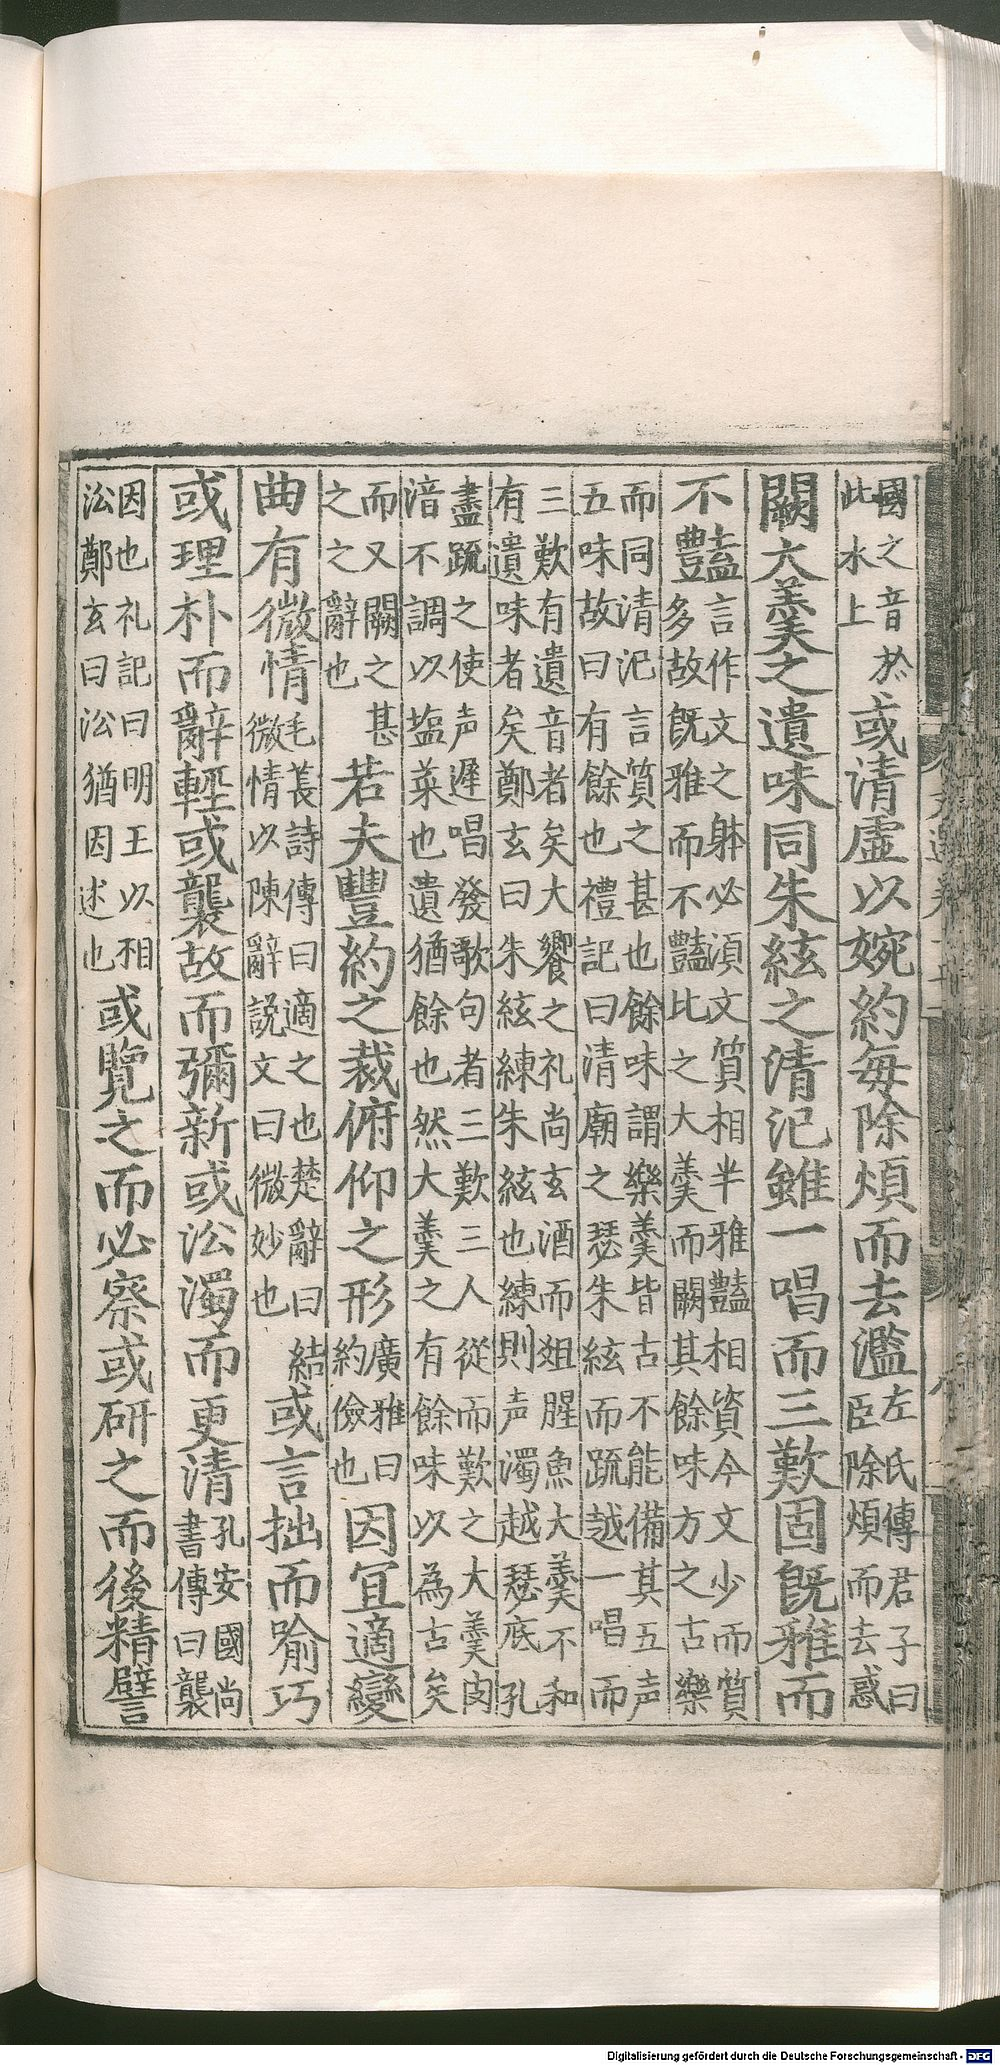 國之音於
此水上
或清虛以婉約每除煩而去濫
左氏傳君子曰
臣除煩而去惑
闕大羹之遺味同朱絃之清汜雖一唱而三歎固既雅而
不豔
言作文之躰必須文質相半雅豔相資今文少而質
多故既雅而不豔比之大羹而闕其餘味方之古樂
而同清汜言質之甚也餘味謂樂羹皆古不能備其五声
五味故曰有餘也禮記曰清廟之瑟朱絃而疏越一唱而
三歎有遺音者矣大饗之礼尚玄酒而俎腥魚大羹不和
有遺味者矣鄭玄曰朱絃練朱絃也練則声濁越瑟底孔
盡疏之使声遲唱發歌句者三歎三人從而歎之大羹肉
湆不調以塩菜也遺猶餘也然大羹之有餘味以為古矣
而又闕之甚
之之辭也
若夫豐約之裁俯仰之形
廣雅曰
約儉也
因宜適變
曲有微情
毛萇詩傳曰適之也楚辭曰結
微情以陳辭說文曰微妙也
或言拙而喻巧
或理朴而辭輕或襲故而彌新或㳂濁而更清
孔安國尚
書傳曰襲
因也礼記曰明王以相
㳂鄭玄曰㳂猶因述也
或覽之而必察或研之而後精譬
Digitalisierung gefördert durch die Deutsche Forschungsgemeinschaft - DFG